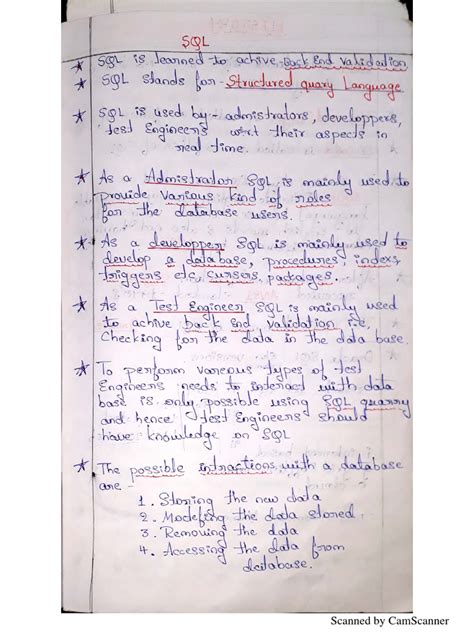 SQL
★ SQL is learned to achive Back End validation
★ SQL stands for Structured quary Language
★ SQL is used by - admistrators, developpers,
test Engineers w.r.t their aspects in
real time.
★ As a Admistrator SQL is mainly used to
provide various kind of roles
for the database users.
★ As a developper SQL is mainly used to
develop a database, procedures, indexs,
triggers etc, cursers, packages.
★ As a Test Engineer SQL is mainly used
to achive back End validation i.e,
checking for the data in the data base.
★ To perform vareous types of test
Engineers needs to interact with data
base is only possible using SQL quarry
and hence test Engineers should
have knowledge on SQL
★ The possible intractions with a database
are -
1. Storing the new data
2. Modefing the data stored
3. Removing the data
4. Accessing the data from
database.
Scanned by CamScanner